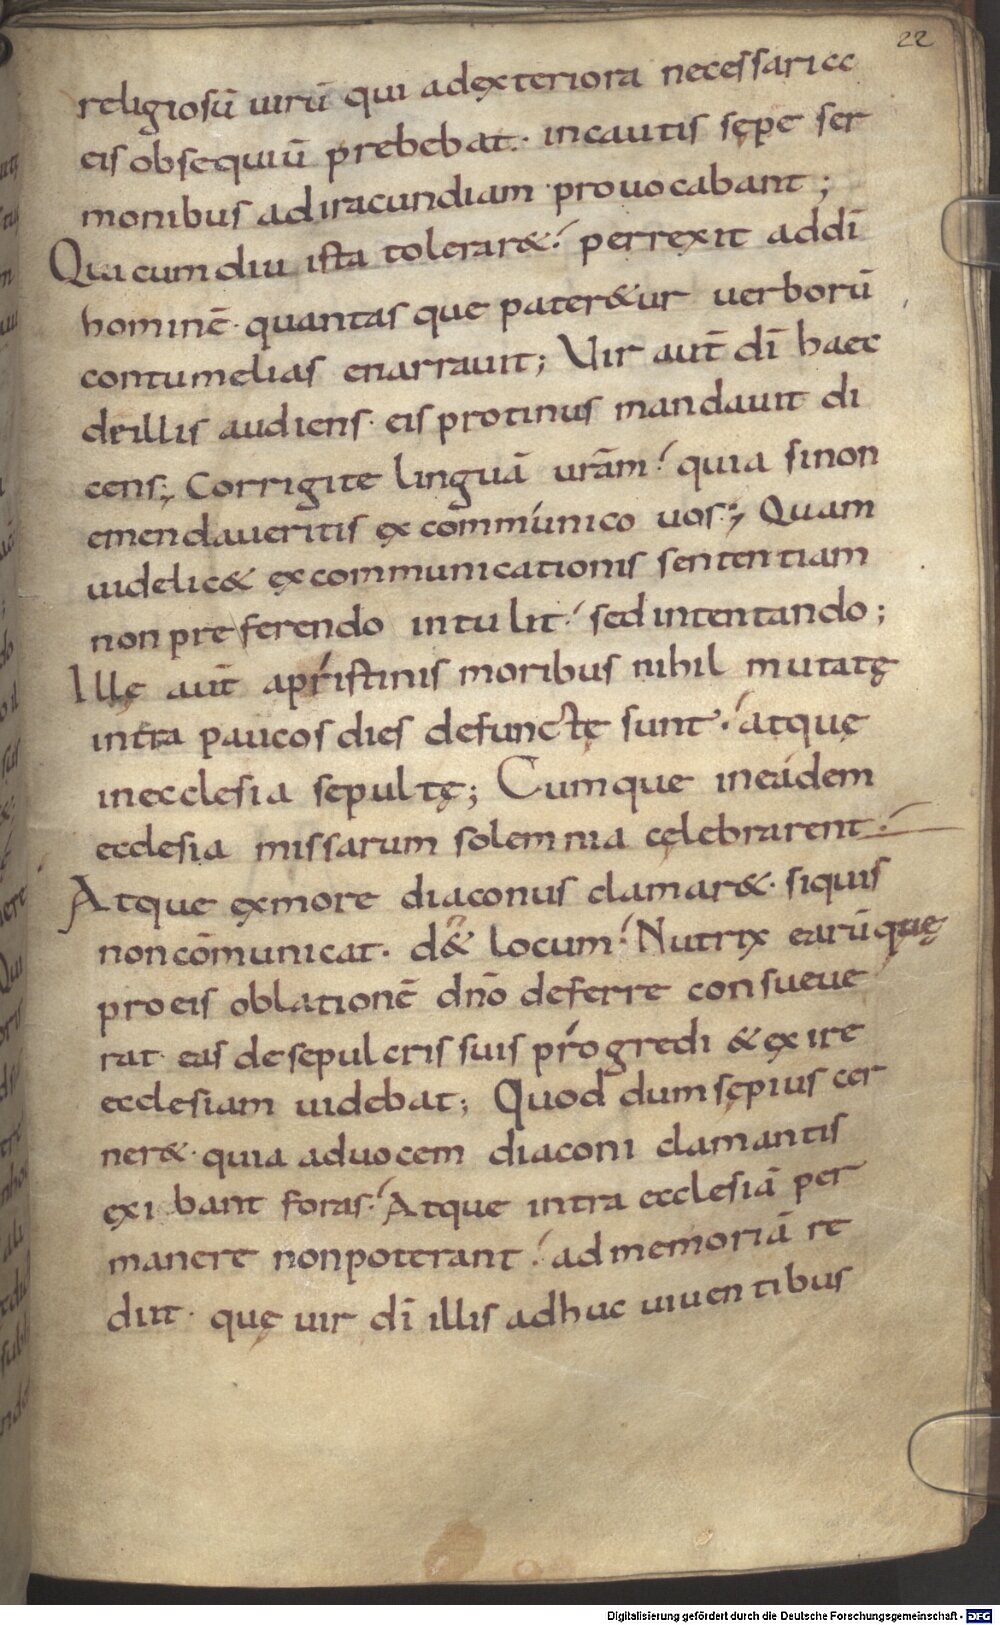 22
religiosū uirū qui adexteriora necessariae
eis obsequiū prebebat. incautis sępe ser
monibus adiracundiam prouocabant;
Qui cum diu ista tolerar&. perrexit addī
hominē. quantas que pater&ur uerborū
contumelias enarrauit; Uir aut̄ dī haec
deillis audiens. eis protinus mandauit di
cens; Corrigite linguā ur̄am. quia sinon
emendaueritis excōmunico uos; Quam
uidelic& excommunicationis sententiam
non preferendo intulit. sed intentando;
Illę aut̄ apristinis moribus nihil mutatę
intra paucos dies defunctę sunt. atque
inecclesia sepultę; Cumque ineadem
ecclesia missarum solemnia cęlebrarent.
Atque exmore diaconus clamar&. siquis
noncōmunicat. d& locum. Nutrix earū quę
proeis oblationē dn̄o deferre consueue
rat. eas desepulcris suis progredi & exire
ecclesiam uidebat; Quod dum sępius cer
ner&. quia aduocem diaconi clamantis
exibant foras. Atque intra ecclesiā per
manere nonpoterant. admemoriā re
diit. quę uir dī illis adhuc uiuentibus
Digitalisierung gefördert durch die Deutsche Forschungsgemeinschaft - DFG